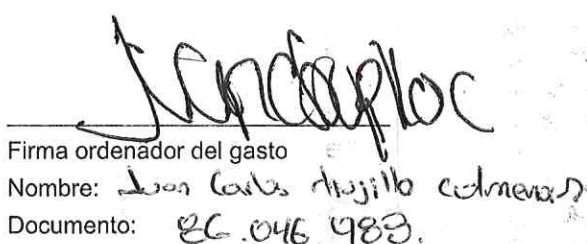 Firma ordenador del gasto
Nombre: Juan Carlos Trujillo Colmenares
Documento: 86.046.983.